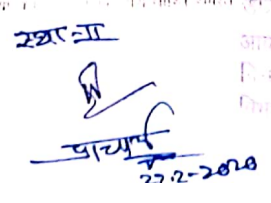 स्था-II
प्राचार्य
22.2-2020